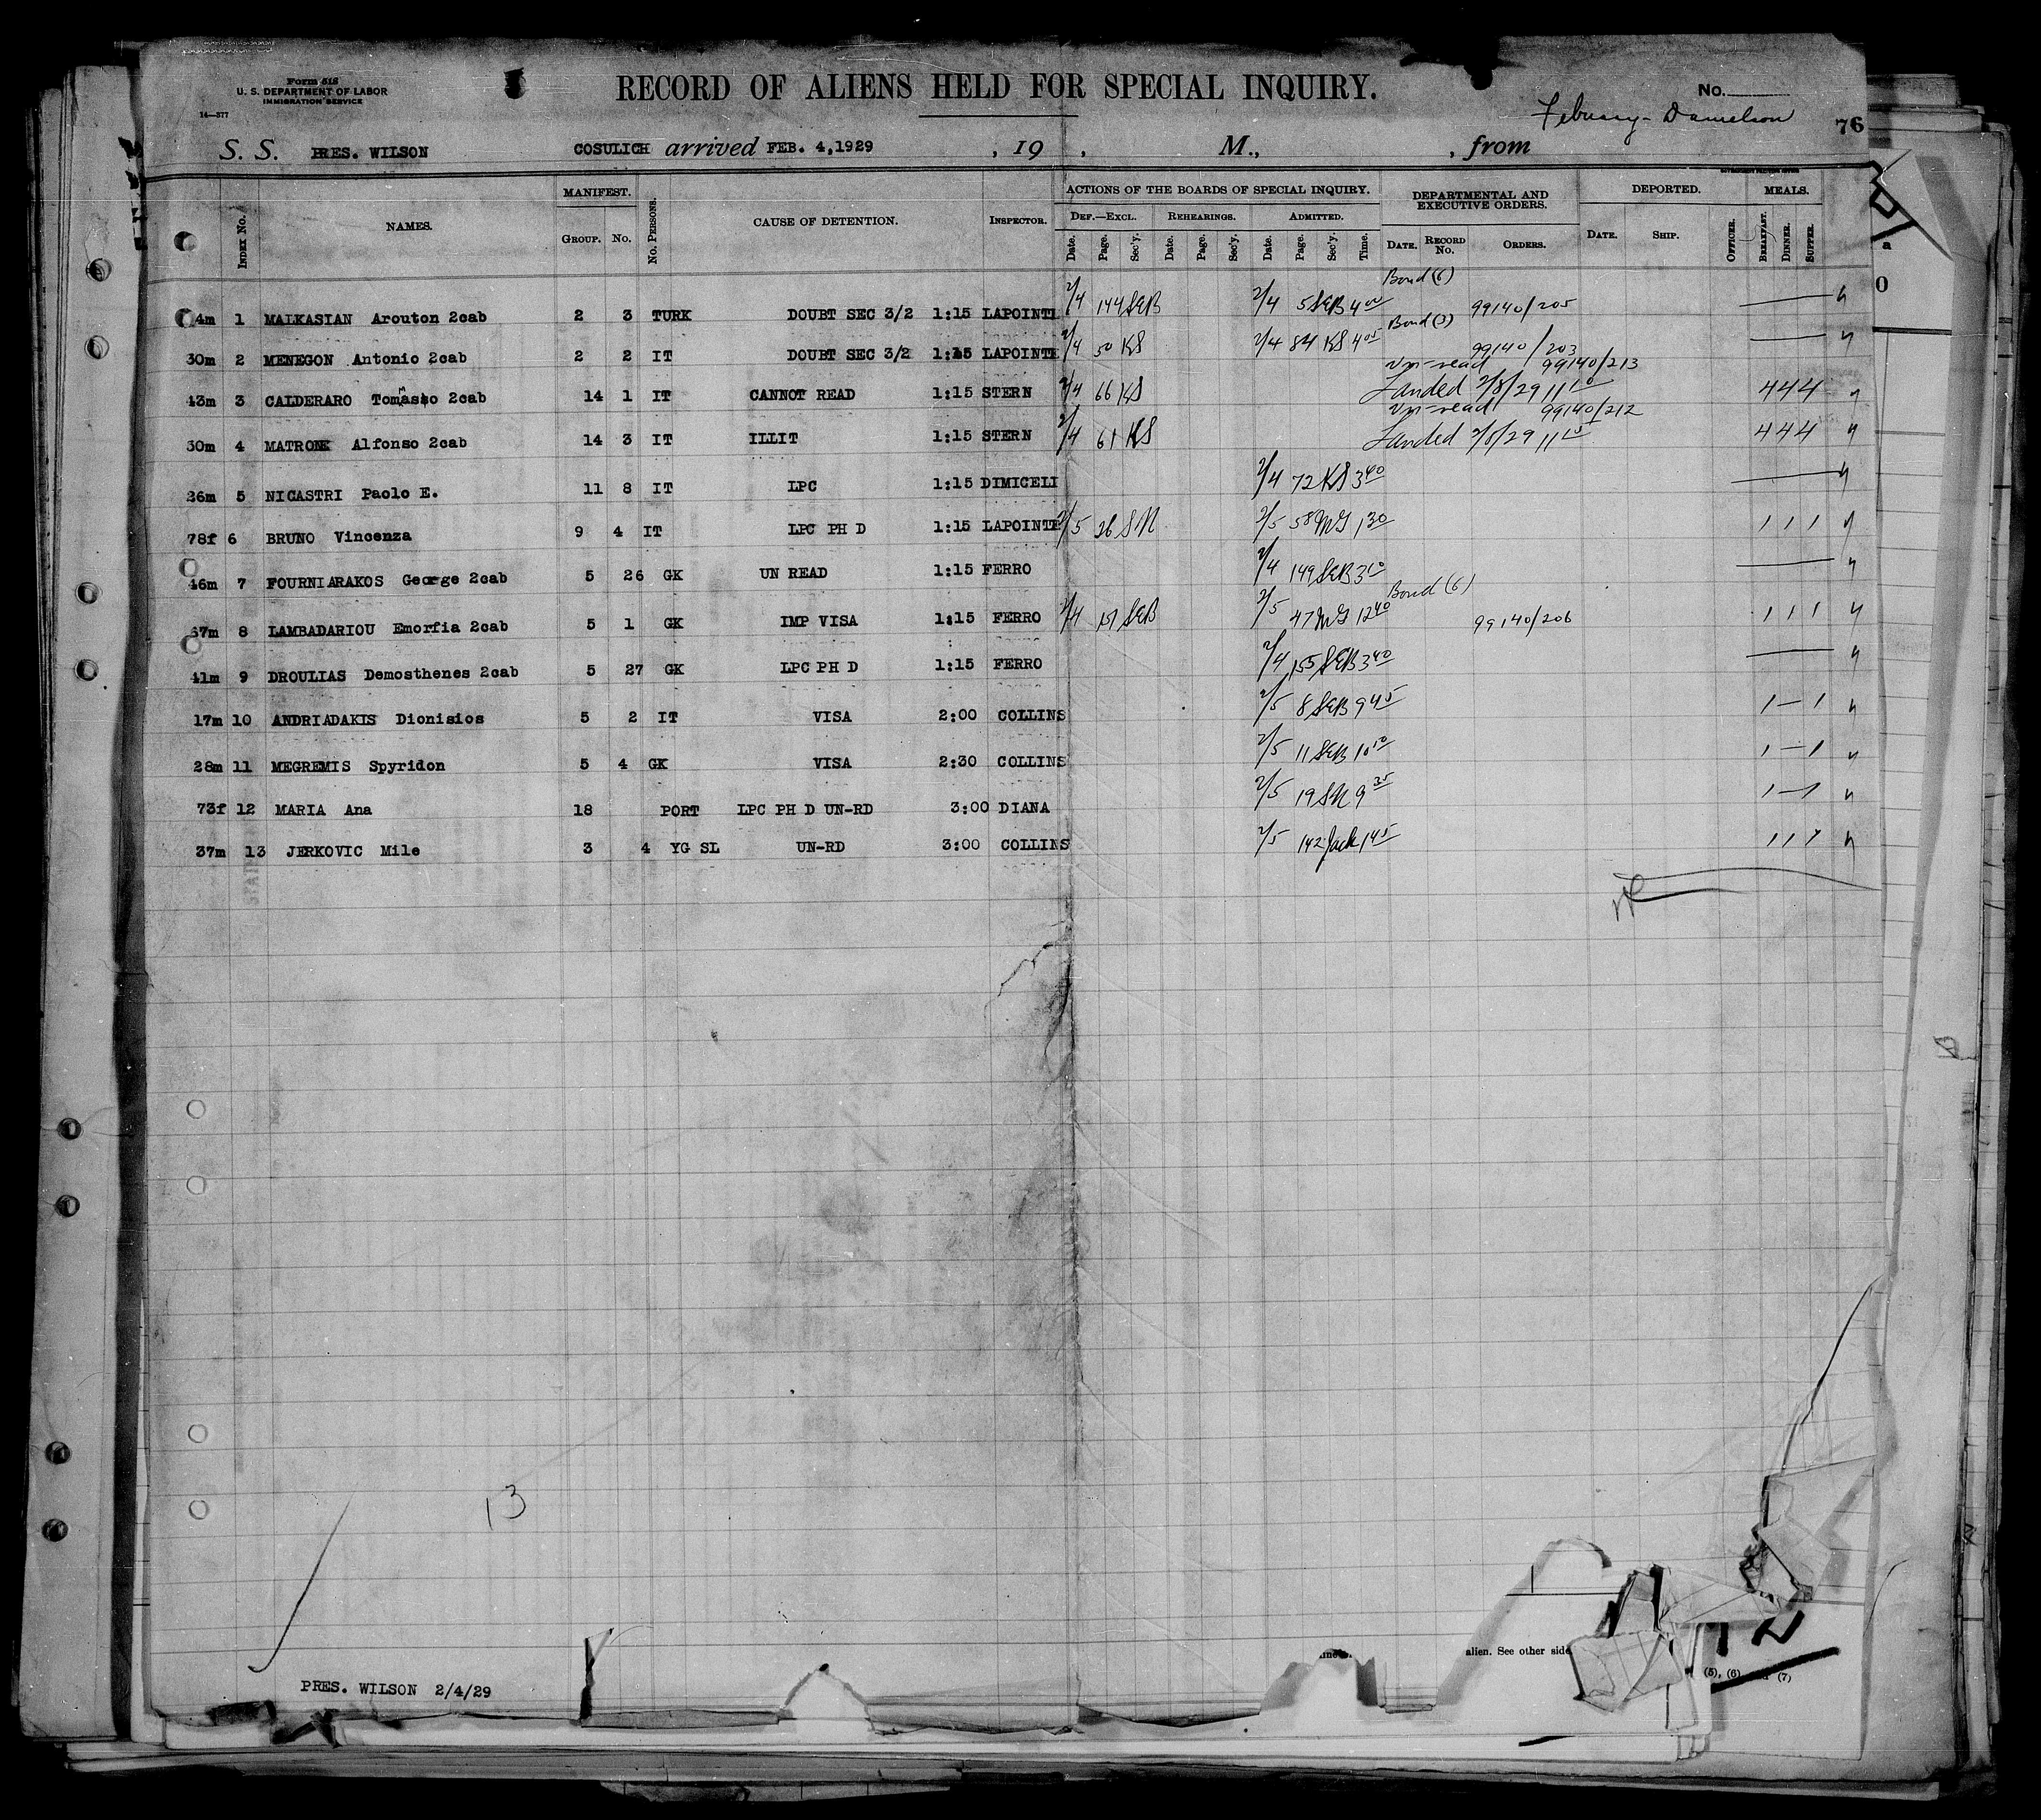 Form 518
U. S. DEPARTMENT OF LABOR
IMMIGRATION SERVICE
14—577
RECORD OF ALIENS HELD FOR SPECIAL INQUIRY.
No.
Danielson
76
S. S. PRES. WILSON COSULICH arrived FEB. 4,1929 , 19 , M., , from
Index No. NAMES. MANIFEST. GROUP. No. No. PERSONS. CAUSE OF DETENTION. INSPECTOR. ACTIONS OF THE BOARDS OF SPECIAL INQUIRY. DEPARTMENTAL AND EXECUTIVE ORDERS. DEPORTED. MEALS.
DEF.—EXCL. REHEARINGS. ADMITTED.
Date. Page. Sec'y. Date. Page. Sec'y. Date. Page. Sec'y. Time. DATE. RECORD No. ORDERS. DATE. SHIP. OFFICER. BREAKFAST. DINNER. SUPPER.
Bond (6)
4m 1 MALKASIAN Arouton 2cab 2 3 TURK DOUBT SEC 3/2 1:15 LAPOINTE 2/4 144 SEB 2/4 5 SEB 4 00 99140/205
Bond (3)
30m 2 MENEGON Antonio 2cab 2 2 IT DOUBT SEC 3/2 1:15 LAPOINTE 2/4 50 KS 2/4 84 KS 4 05 99140/203
un-read 99140/213
43m 3 CALDERARO Tomasso 2cab 14 1 IT CANNOT READ 1:15 STERN 2/4 66 KS Landed 2/8/29 11 10 4 4 4
un-read 99140/212
30m 4 MATRONE Alfonso 2cab 14 3 IT ILLIT 1:15 STERN 2/4 61 KS Landed 2/8/29 11 15 4 4 4
26m 5 NICASTRI Paolo E. 11 8 IT LPC 1:15 DIMICELI 2/4 72 KS 3 40
78f 6 BRUNO Vincenza 9 4 IT LPC PH D 1:15 LAPOINTE 2/5 26 SN 2/5 58 MG 1 30 1 1 1
46m 7 FOURNIARAKOS George 2cab 5 26 GK UN READ 1:15 FERRO 2/4 149 SEB 3 10
Bond (6)
67m 8 LAMBADARIOU Emorfia 2cab 5 1 GK IMP VISA 1:15 FERRO 2/4 151 SEB 2/5 47 MG 12 40 99140/206 1 1 1
41m 9 DROULIAS Demosthenes 2cab 5 27 GK LPC PH D 1:15 FERRO 2/4 155 SEB 3 40
17m 10 ANDRIADAKIS Dionisios 5 2 IT VISA 2:00 COLLINS 2/5 8 SEB 9 45 1 — 1
28m 11 MEGREMIS Spyridon 5 4 GK VISA 2:30 COLLINS 2/5 11 SEB 10 10 1 — 1
73f 12 MARIA Ana 18 PORT LPC PH D UN-RD 3:00 DIANA 2/5 19 SN 9 35 1 — 1
37m 13 JERKOVIC Mile 3 4 YG SL UN-RD 3:00 COLLINS 2/5 142 Jack 1 45 1 1 1
13
alien. See other side
(5), (6) (7)
PRES. WILSON 2/4/29